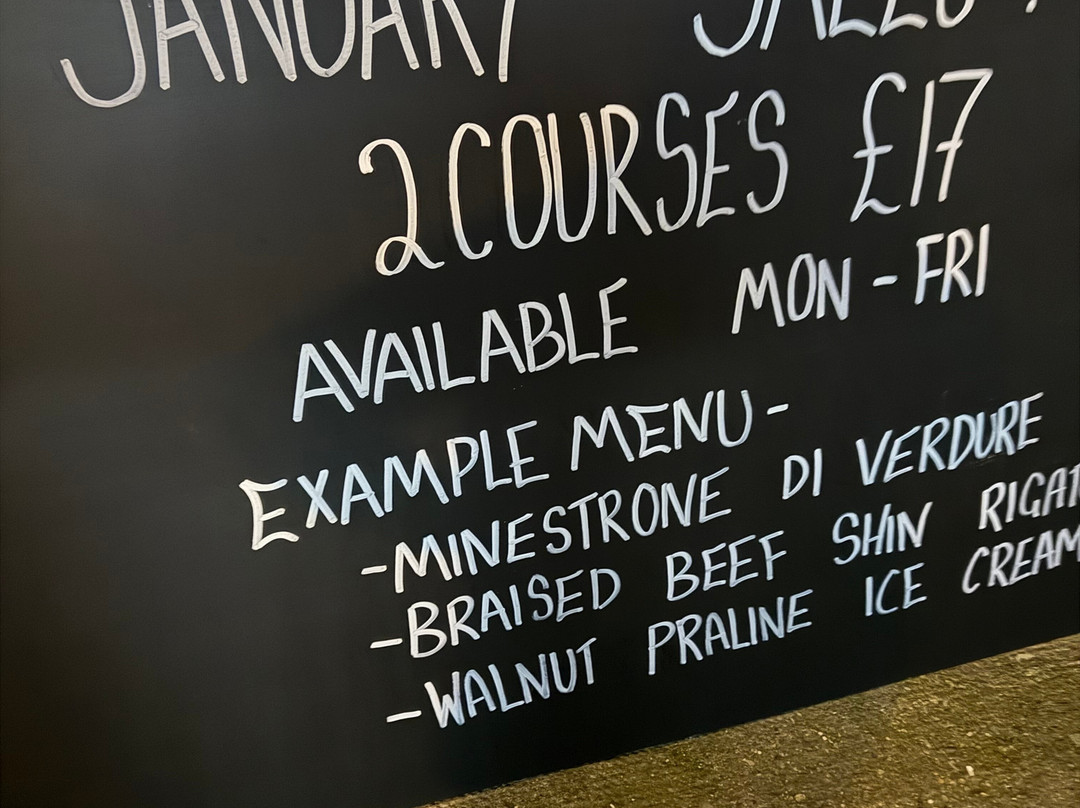 JANUARY SALES
2 COURSES £17
AVAILABLE MON - FRI
EXAMPLE MENU -
- MINESTRONE DI VERDURE
- BRAISED BEEF SHIN
- WALNUT PRALINE ICE CREAM